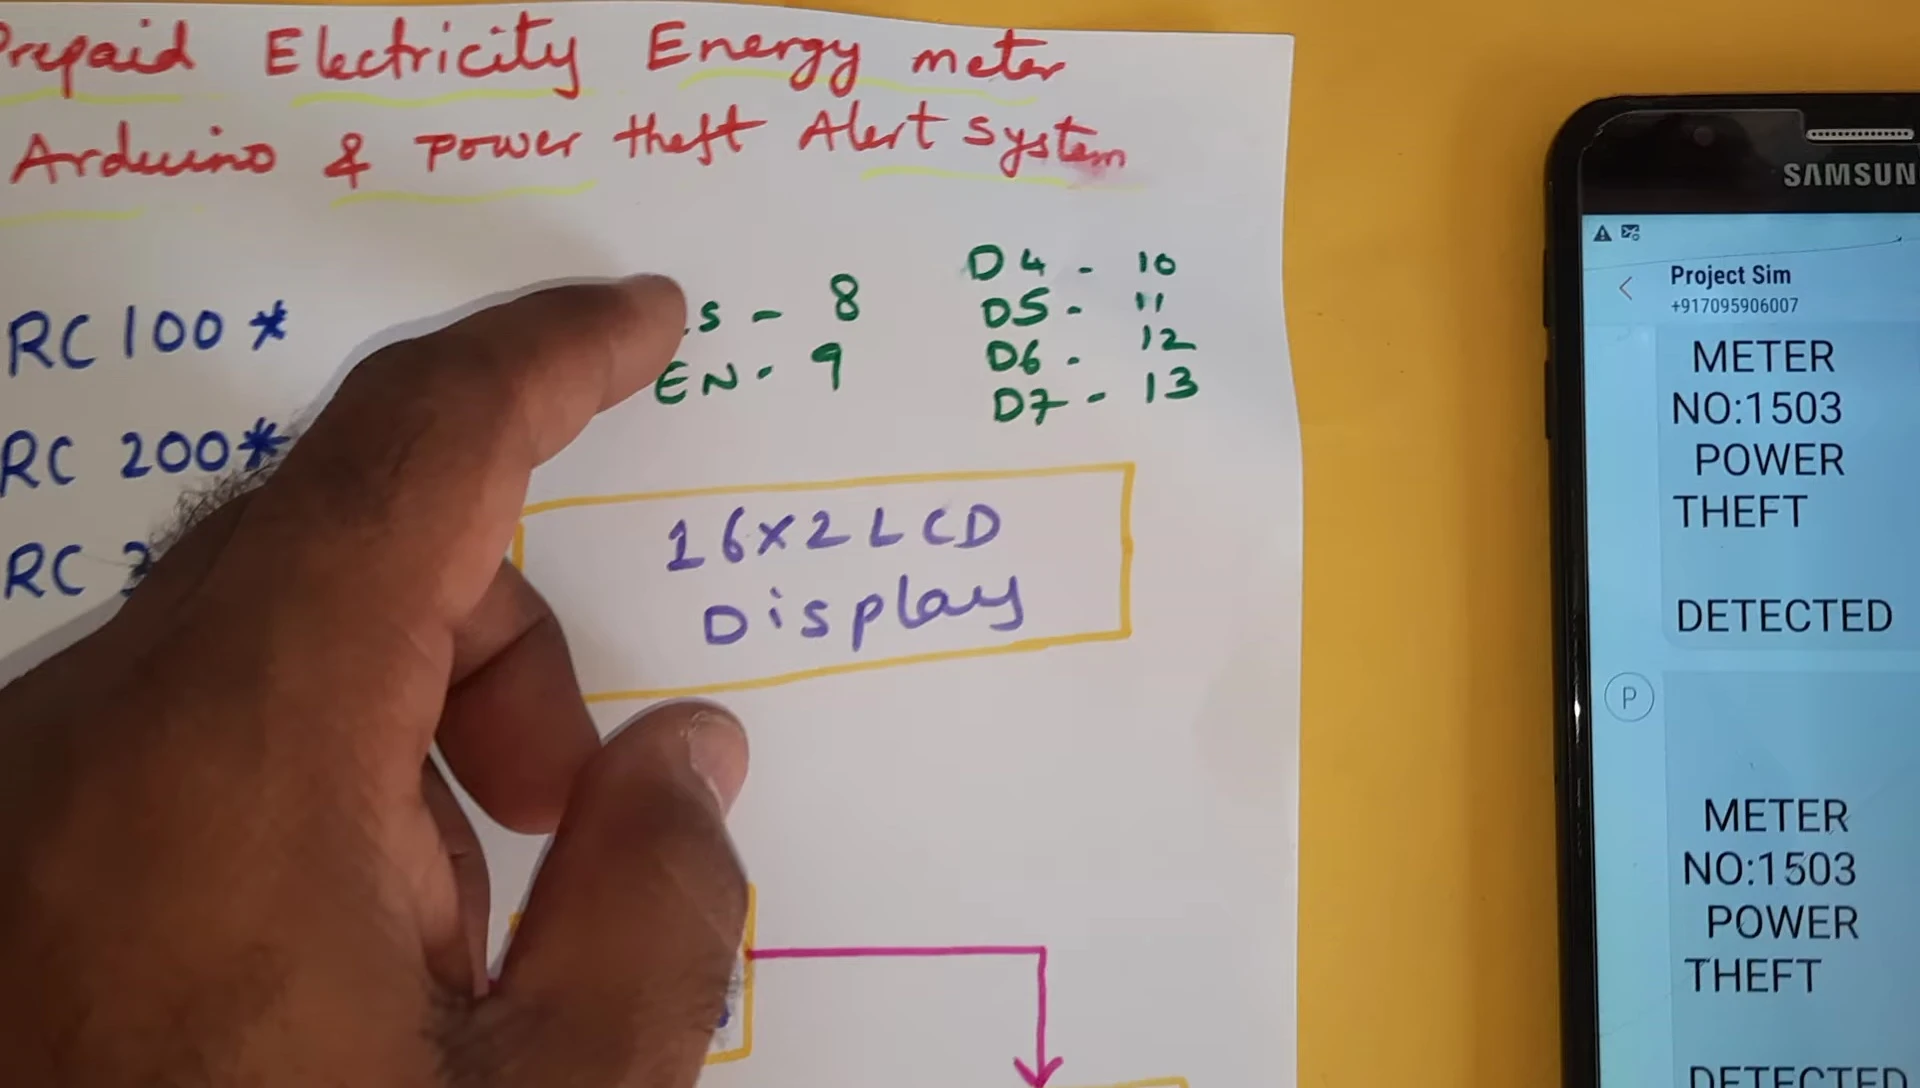 Prepaid Electricity Energy meter
Arduino & power theft Alert System
RC 100*
RC 200*
RC
S - 8
EN - 9
D4 - 10
D5 - 11
D6 - 12
D7 - 13
16x2 LCD
Display
SAMSUN
Project Sim
+917095906007
METER
NO:1503
POWER
THEFT
DETECTED
P
METER
NO:1503
POWER
THEFT
DETECTED